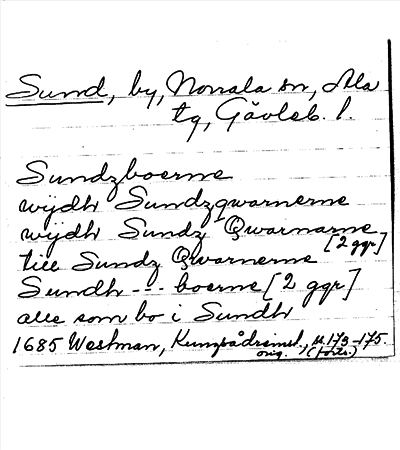 Sund, by, Norrala sn, Ala
tg, Gävleb. l.
Sundzboerne
wijdh Sundzqwarnerne
wijdh Sundz Qwarnarne
[2 ggr]
till Sundz Qwarnerne
Sundh - - - boerne [2 ggr]
alle som bo i Sundh
1685 Westman, s. 173-175.
orig. (forts.)